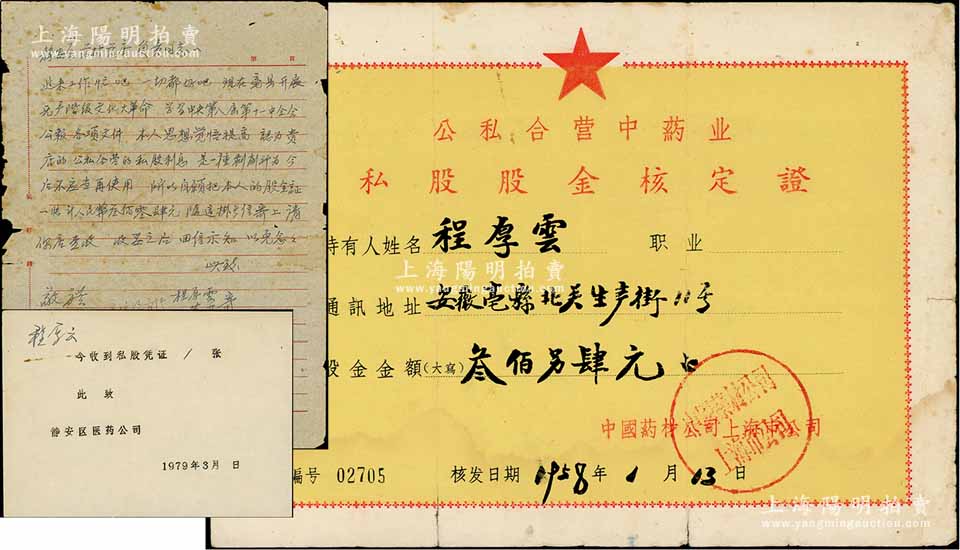 第 頁
近来工作忙吧 一切都好吧 现在亳县开展
无产阶级文化大革命 学习中央第八届第十一中全会
公报 各项文件 本人思想觉悟提高 認为贵
店的公私合营的私股利息 是一種剥削行为 今
后不应当再使用 所以自願把本人的股金証
一張計人民幣叁佰零肆元 随这掛号信寄上 请
你店查收 收到之后 回信示知 以免念念
此致
敬礼
程厚雲
程厚文
今收到私股凭证 / 张
此 致
静安区医药公司
1979年3月 日
公私合营中药业
私股股金核定證
持有人姓名 程厚雲 职业
通訊地址 安徽亳縣北关生产街11号
股金金額(大寫) 叁佰另肆元正
中國药材公司上海市公司
编号 02705 核发日期 1958年1月13日
上海陽明拍賣
www.yangmingauction.com
上海陽明拍賣
www.yangmingauction.com
上海陽明拍賣
www.yangmingauction.com